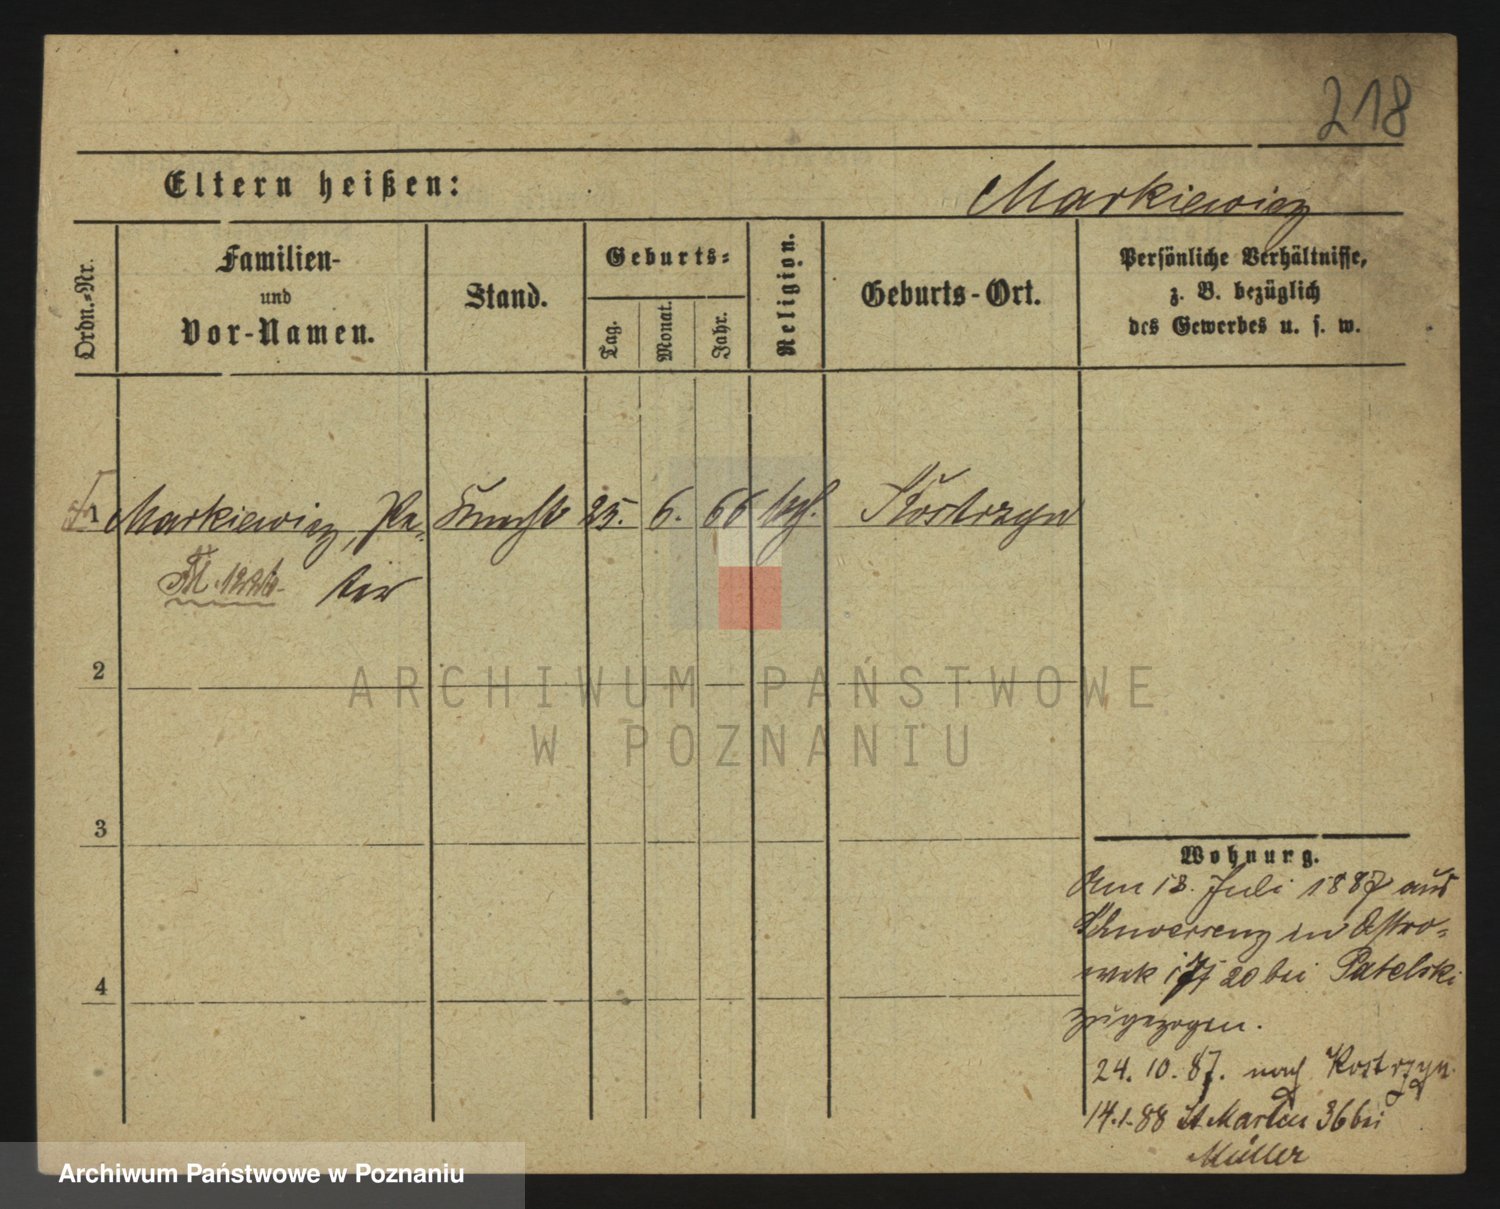 218
Eltern heißen:
Markiewicz
Ordn.-Nr.
Familien-
und
Vor-Namen.
Stand.
Geburts-
Tag.
Monat.
Jahr.
Religion.
Geburts-Ort.
Persönliche Verhältnisse,
z. B. bezüglich
des Gewerbes u. s. w.
1 Markiewicz, Pe- Knecht 25. 6. 66 kth. Kostrzyn
ter
2
ARCHIWUM PAŃSTWOWE
W POZNANIU
3
4
Wohnung.
Am 13. Juli 1887 aus
Schwersenz in Ostro-
wek 20 bei Patelski
zugezogen.
24. 10. 87. nach Kostrzyn
14.1.88 St Martin 36 bei
Müller
Archiwum Państwowe w Poznaniu